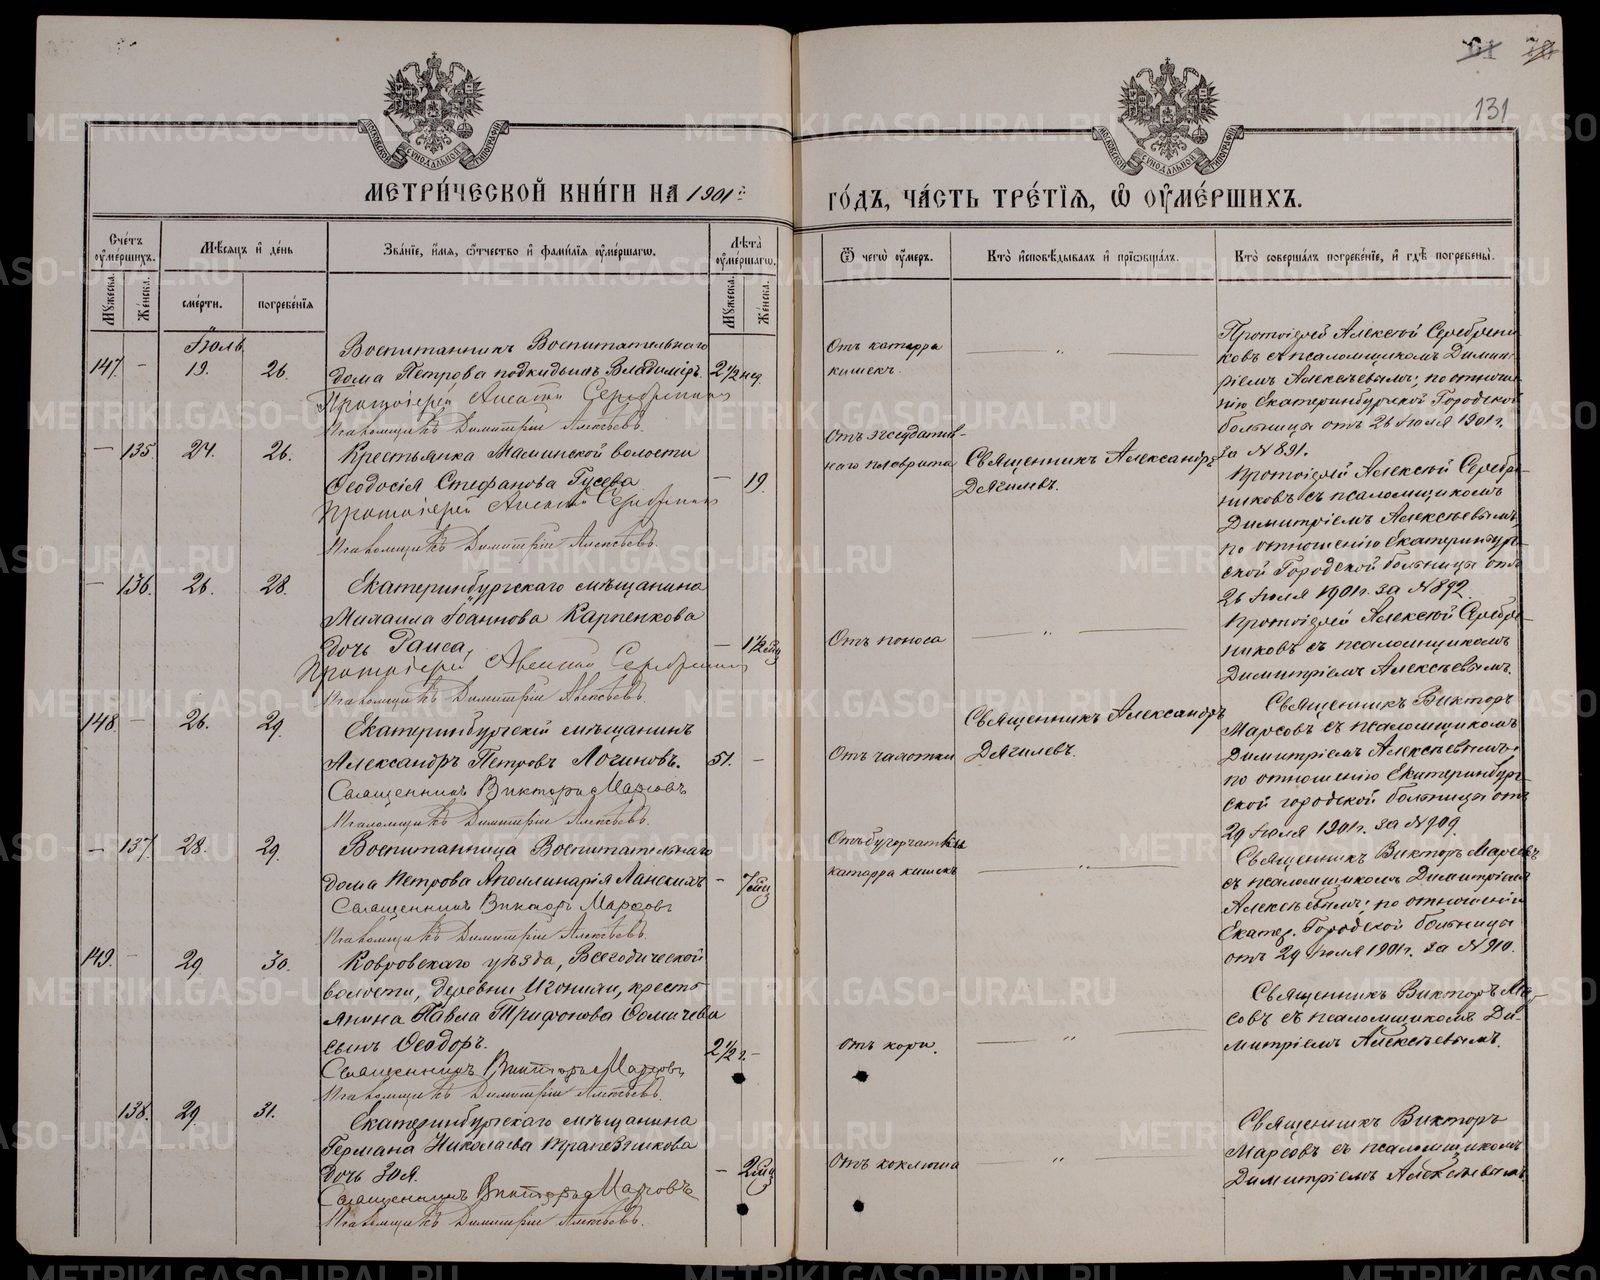 131
МОСКОВСКОЙ СѴНОДАЛЬНОЙ ТИПОГРАФІИ
МОСКОВСКОЙ СѴНОДАЛЬНОЙ ТИПОГРАФІИ
МЕТРИ́ЧЕСКОЙ КНИ́ГИ НА 1901й
ГО́ДЪ, ЧА́СТЬ ТРЕ́ТІѦ, Ѽ ОУ҆МЕ́РШИХЪ.
Сче́тъ оу҆ме́ршихъ.
Мꙋжеска.
Же́нска.
Мѣ́сяцъ и҆ де́нь
сме́рти.
погребе́нїя
Зва́нїе, и҆́мѧ, ѻ҆́тчество и҆ фамі́лїѧ оу҆ме́ршагѡ.
Лѣ́та оу҆ме́ршагѡ.
Мꙋжеска.
Же́нска.
Ѿ чегѡ̀ оу҆́меръ.
Кто̀ и҆сповѣ́дывалъ и҆ прїѡбща́лъ.
Кто̀ соверша́лъ погребе́нїе, и҆ гдѣ̀ погребены̀.
Іюль
147. - 19. 26.
Воспитанникъ Воспитательнаго
дома Петрова подкидышъ Владиміръ. 2 1/2 нед.
Протоіерей Алексій Серебренников
Псаломщикъ Димитрій Алексѣевъ.
Отъ катарра
кишекъ.
Протоіерей Алексѣй Серебрени
ковъ съ псаломщикомъ Димит-
ріемъ Алексѣевымъ; по отноше-
нію Екатеринбургской Городской
больницы отъ 26 Іюля 1901 г.
за № 891.
- 135. 24. 26.
Крестьянка Маминской волости
Ѳеодосія Стефанова Гусева - 19.
Протоіерей Алексій Серебреников
Псаломщикъ Димитрій Алексѣевъ.
Отъ эксудатив-
наго плеврита
Священникъ Александръ
Дягилевъ.
Протоіерей Алексѣй Серебре-
никовъ съ псаломщикомъ
Димитріемъ Алексѣевымъ,
по отношенію Екатеринбург-
ской Городской больницы отъ
26 Іюля 1901 г. за № 892.
- 136. 26. 28.
Екатеринбургскаго мѣщанина
Михаила Іоаннова Карпенкова
дочь Раиса, - 1 1/2 мц
Протоіерей Алексій Серебреников
Псаломщикъ Димитрій Алексѣевъ.
Отъ поноса
Протоіерей Алексѣй Серебре-
никовъ съ псаломщикомъ
Димитріемъ Алексѣевымъ.
148. - 26. 29.
Екатеринбургскій мѣщанинъ
Александръ Петровъ Логиновъ. 51. -
Священникъ Викторъ Марсовъ
Псаломщикъ Димитрій Алексѣевъ.
Отъ чахотки
Священникъ Александръ
Дягилевъ.
Священникъ Викторъ
Марсовъ съ псаломщикомъ
Димитріемъ Алексѣевымъ;
по отношенію Екатеринбург-
ской городской больницы отъ
29 Іюля 1901 г. за № 909.
- 137. 28. 29.
Воспитанница Воспитательнаго
дома Петрова Аполлинарія Ланскихъ - 7 мц
Священникъ Викторъ Марсовъ
Псаломщикъ Димитрій Алексѣевъ.
Отъ бугорчатки
катарра кишекъ
Священникъ Викторъ Марсовъ
съ псаломщикомъ Димитріемъ
Алексѣевымъ; по отношенію
Екатер. Городской больницы
отъ 29 Іюля 1901 г. за № 910.
149. - 29 30.
Ковровскаго уѣзда, Всегодической
волости, деревни Игонихи, кресть
янина Павла Трифонова Ѳомичева
сынъ Ѳеодоръ. 2 1/2 г. -
Священникъ Викторъ Марсовъ
Псаломщикъ Димитрій Алексѣевъ.
отъ кори.
Священникъ Викторъ Мар-
совъ съ псаломщикомъ Ди-
митріемъ Алексѣевымъ.
138. 29 31.
Екатеринбургскаго мѣщанина
Германа Николаева Трапезникова
дочь Зоя. - 2 мц
Священникъ Викторъ Марсовъ
Псаломщикъ Димитрій Алексѣевъ.
Отъ коклюша
Священникъ Викторъ
Марсовъ съ псаломщикомъ
Димитріемъ Алексѣевымъ
METRIKI.GASO-URAL.RU